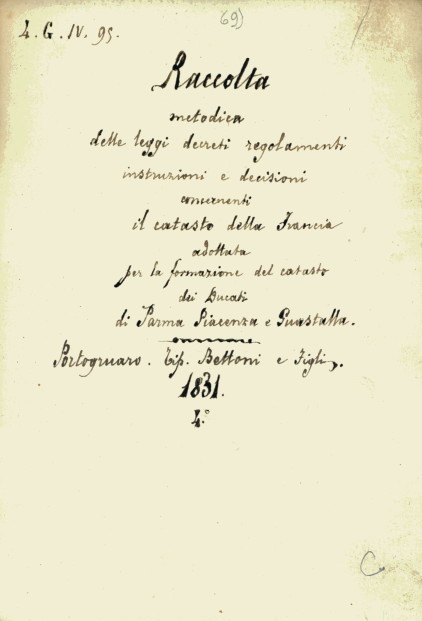 69)
4. G. IV. 95.
Raccolta
metodica
delle leggi decreti regolamenti
instruzioni e decisioni
concernenti
il catasto della Francia
adottata
per la formazione del catasto
dei Ducati
di Parma Piacenza e Guastalla.
Portogruaro. Tip. Bettoni e Figli.
1831.
4.°
C